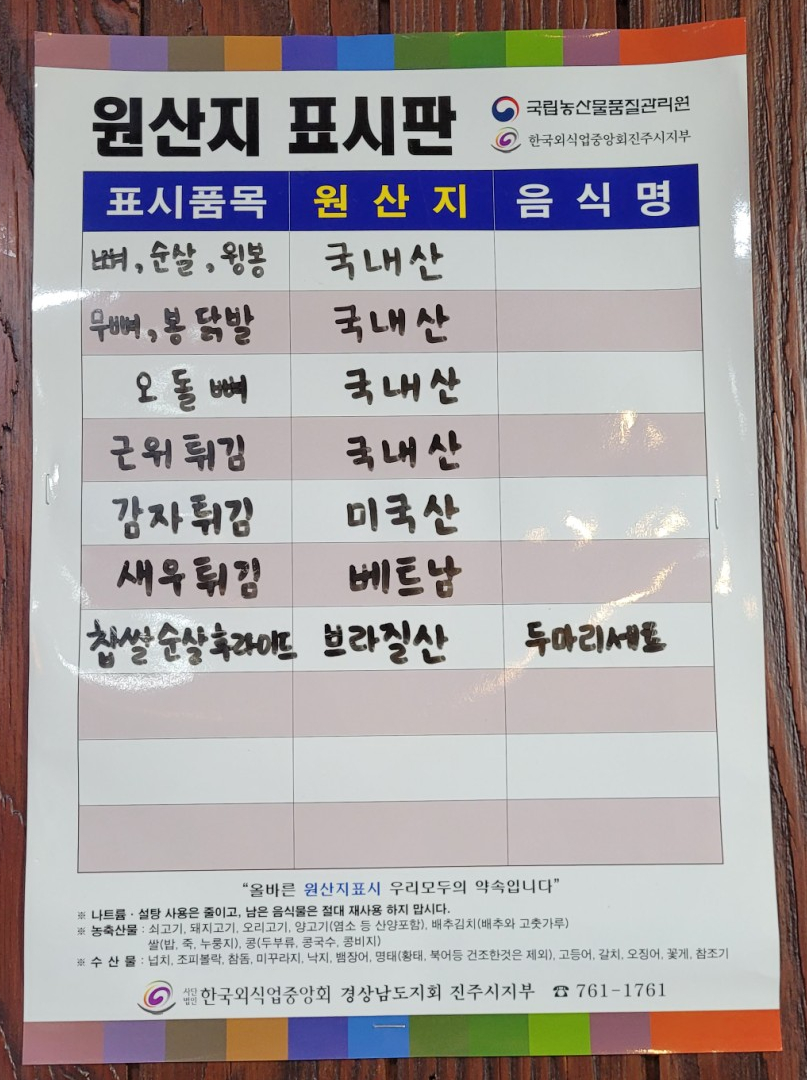 원산지 표시판
국립농산물품질관리원
한국외식업중앙회진주시지부
표시품목 원산지 음식명
뼈, 순살, 윙봉 국내산
무뼈, 봉 닭발 국내산
오돌뼈 국내산
근위튀김 국내산
감자튀김 미국산
새우튀김 베트남
찹쌀순살후라이드 브라질산 두마리세표
“올바른 원산지표시 우리모두의 약속입니다”
※ 나트륨·설탕 사용은 줄이고, 남은 음식물은 절대 재사용 하지 맙시다.
※ 농축산물 : 쇠고기, 돼지고기, 오리고기, 양고기(염소 등 산양포함), 배추김치(배추와 고춧가루)
쌀(밥, 죽, 누룽지), 콩(두부류, 콩국수, 콩비지)
※ 수 산 물 : 넙치, 조피볼락, 참돔, 미꾸라지, 낙지, 뱀장어, 명태(황태, 북어등 건조한것은 제외), 고등어, 갈치, 오징어, 꽃게, 참조기
사단법인 한국외식업중앙회 경상남도지회 진주시지부 ☎ 761-1761